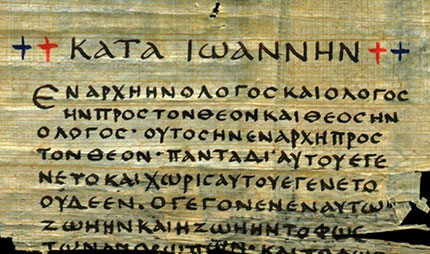 ΚΑΤΑ ΙΩΑΝΝΗΝ
ΕΝΑΡΧΗΗΝΟΛΟΓΟϹΚΑΙΟΛΟΓΟϹ
ΗΝΠΡΟϹΤΟΝΘΕΟΝΚΑΙΘΕΟϹΗΝ
ΟΛΟΓΟϹ·ΟΥΤΟϹΗΝΕΝΑΡΧΗΠΡΟϹ
ΤΟΝΘΕΟΝ·ΠΑΝΤΑΔΙ'ΑΥΤΟΥΕΓΕ
ΝΕΤΟΚΑΙΧΩΡΙϹΑΥΤΟΥΕΓΕΝΕΤΟ
ΟΥΔΕΕΝ·ΟΓΕΓΟΝΕΝΕΝΑΥΤΩ
ΖΩΗΗΝΚΑΙΗΖΩΗΗΝΤΟΦΩϹ